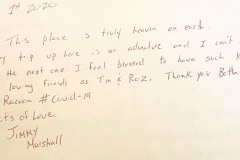 1st 2020
This place is truly heaven on earth.
ry trip up here is an adventure and I can't
the next one I feel blessed to have such
loving friends as Tim & Roz. Thank you Both
Raccoon #Covid-19
cts of Love
Jimmy
Marshall